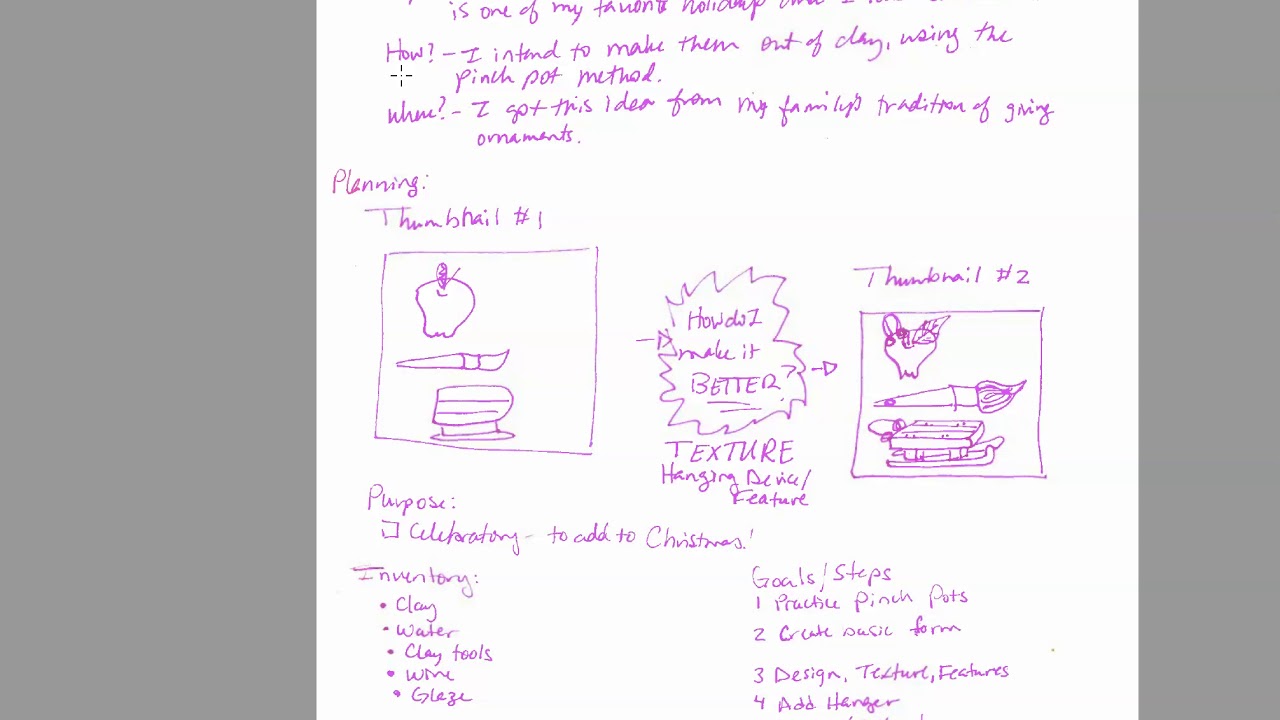 is one of my favorite holidays and I
How? - I intend to make them out of clay, using the
pinch pot method.
Where? - I got this idea from my family's tradition of giving
ornaments.
Planning:
Thumbnail #1
Thumbnail #2
How do I
make it
BETTER?
TEXTURE
Hanging Device/
Feature
Purpose:
Celebratory - to add to Christmas!
Inventory:
• Clay
• Water
• Clay tools
• Wire
• Glaze
Goals/Steps
1 Practice Pinch Pots
2 Create basic form
3 Design, Texture, Features
4 Add Hanger